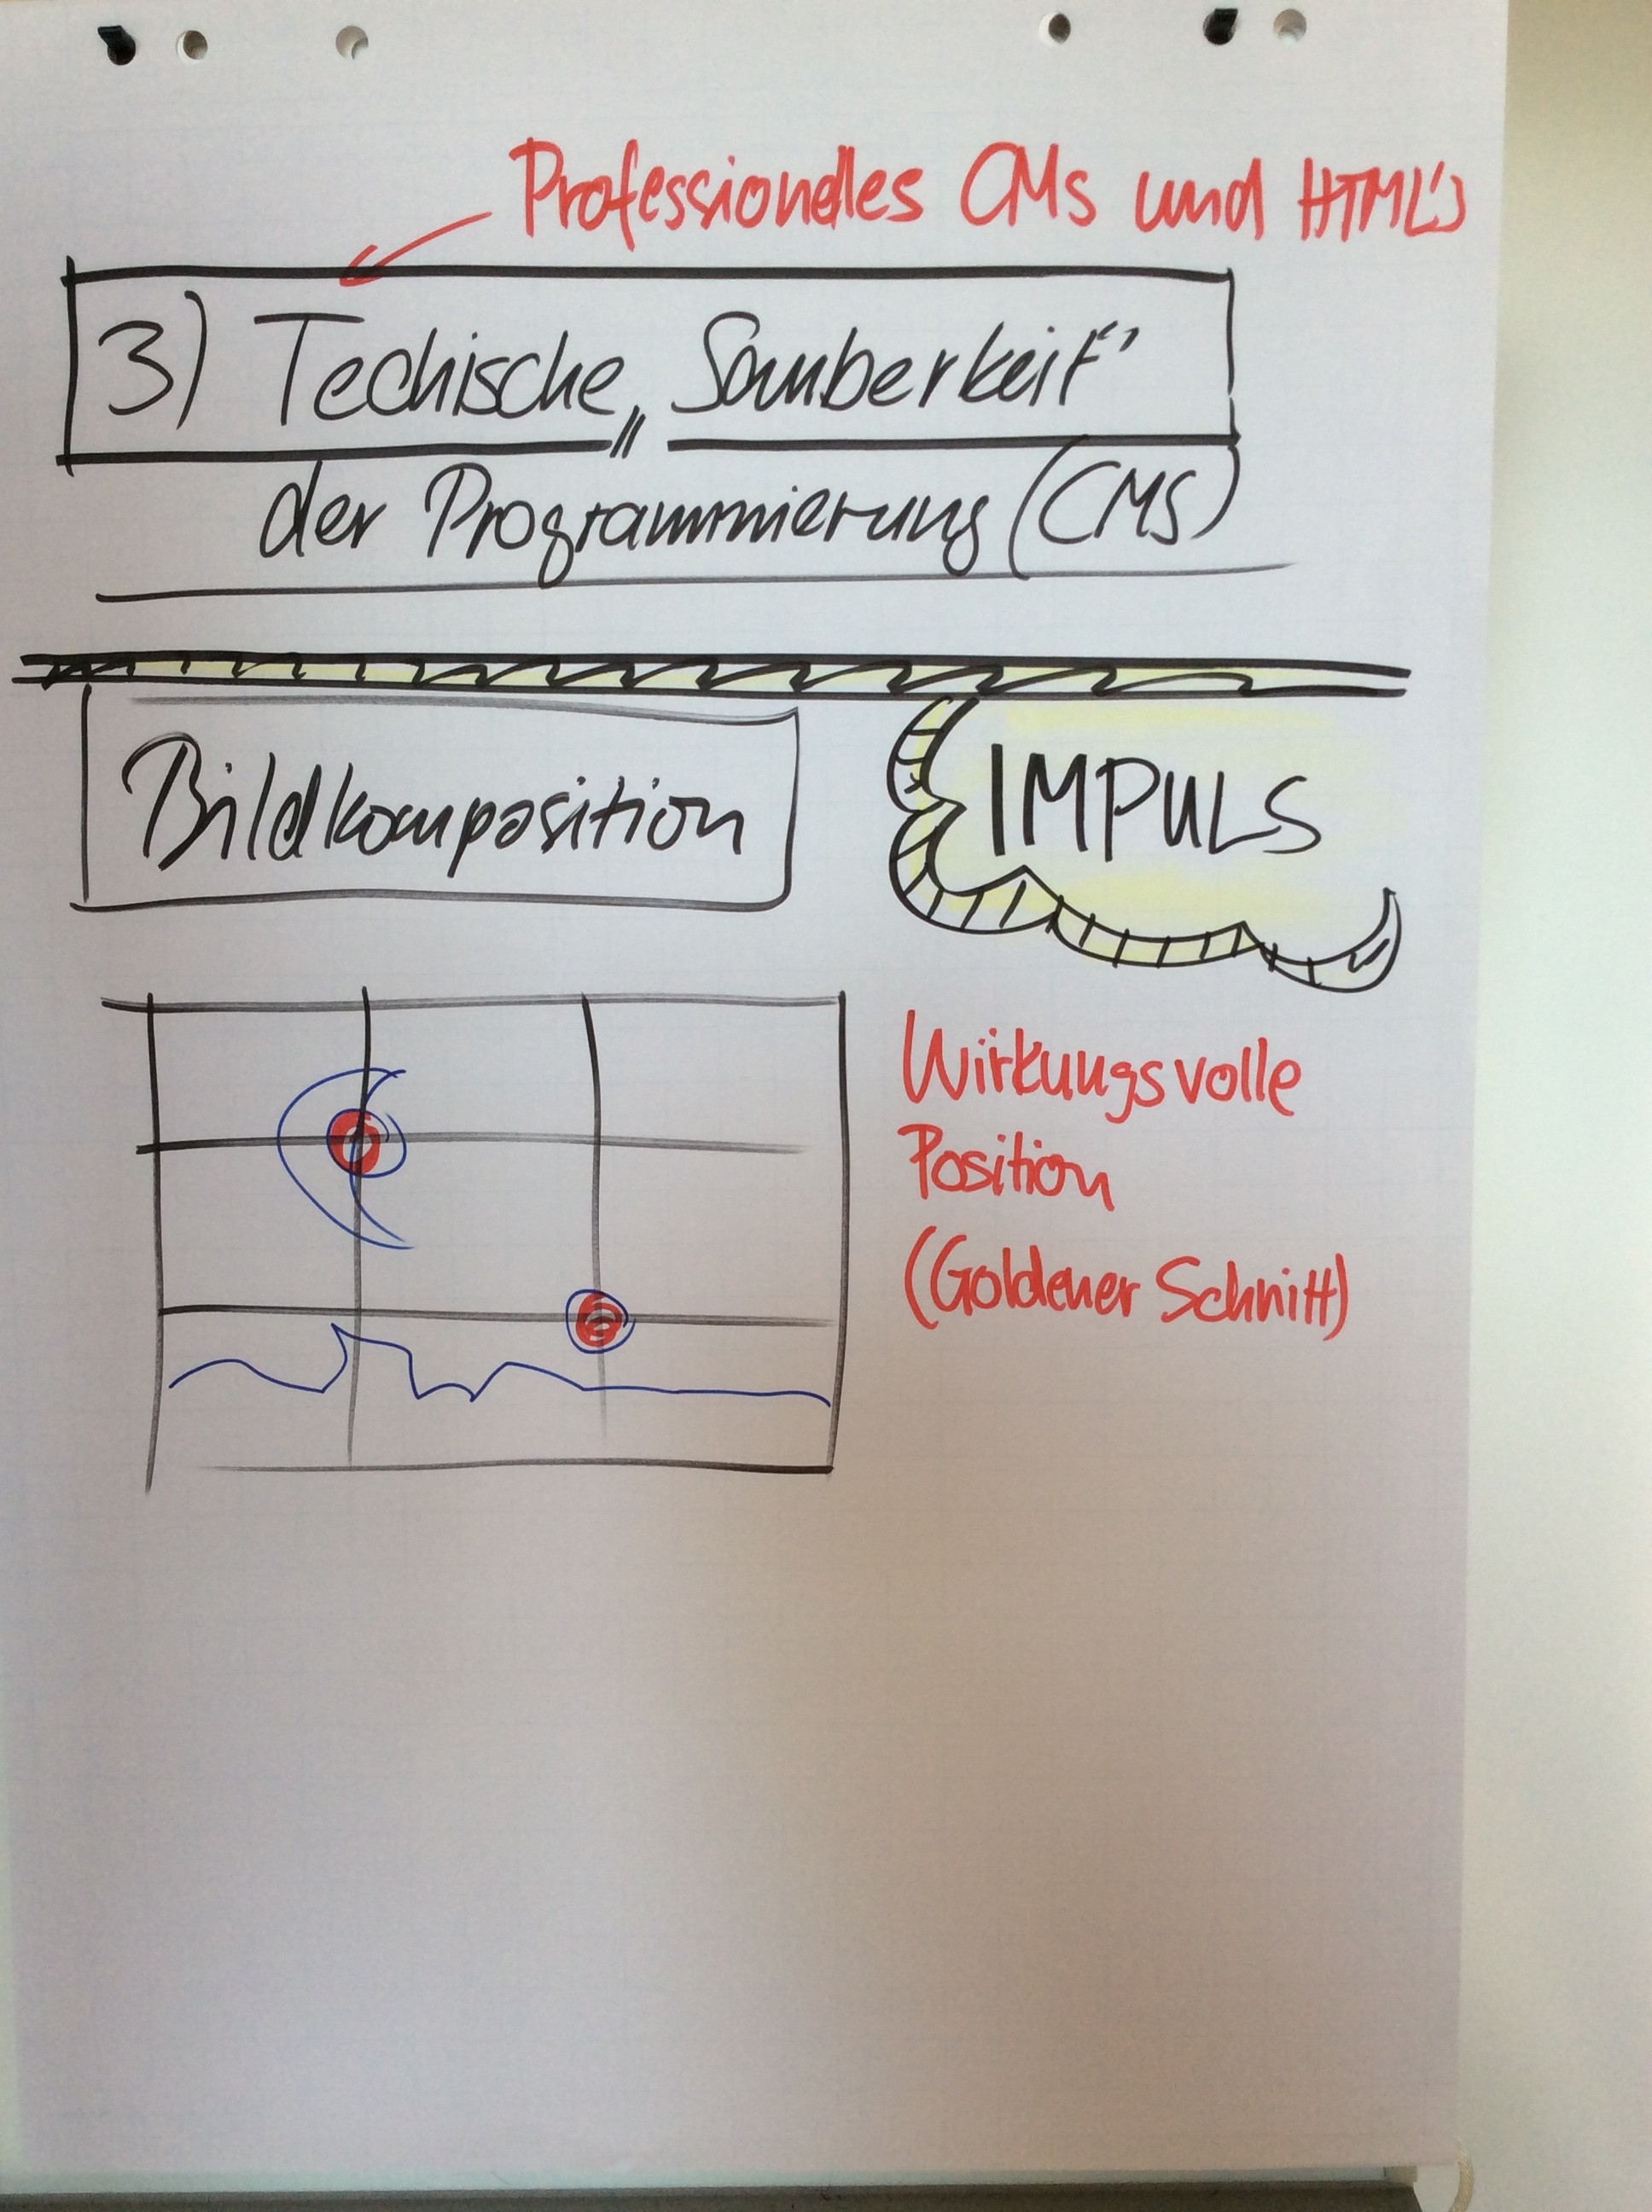 Professionelles CMs und HTML's
3) Techische „Sauberkeit"
der Programmierung (CMS)
Bildkomposition
IMPULS
Wirkungsvolle
Position
(Goldener Schnitt)